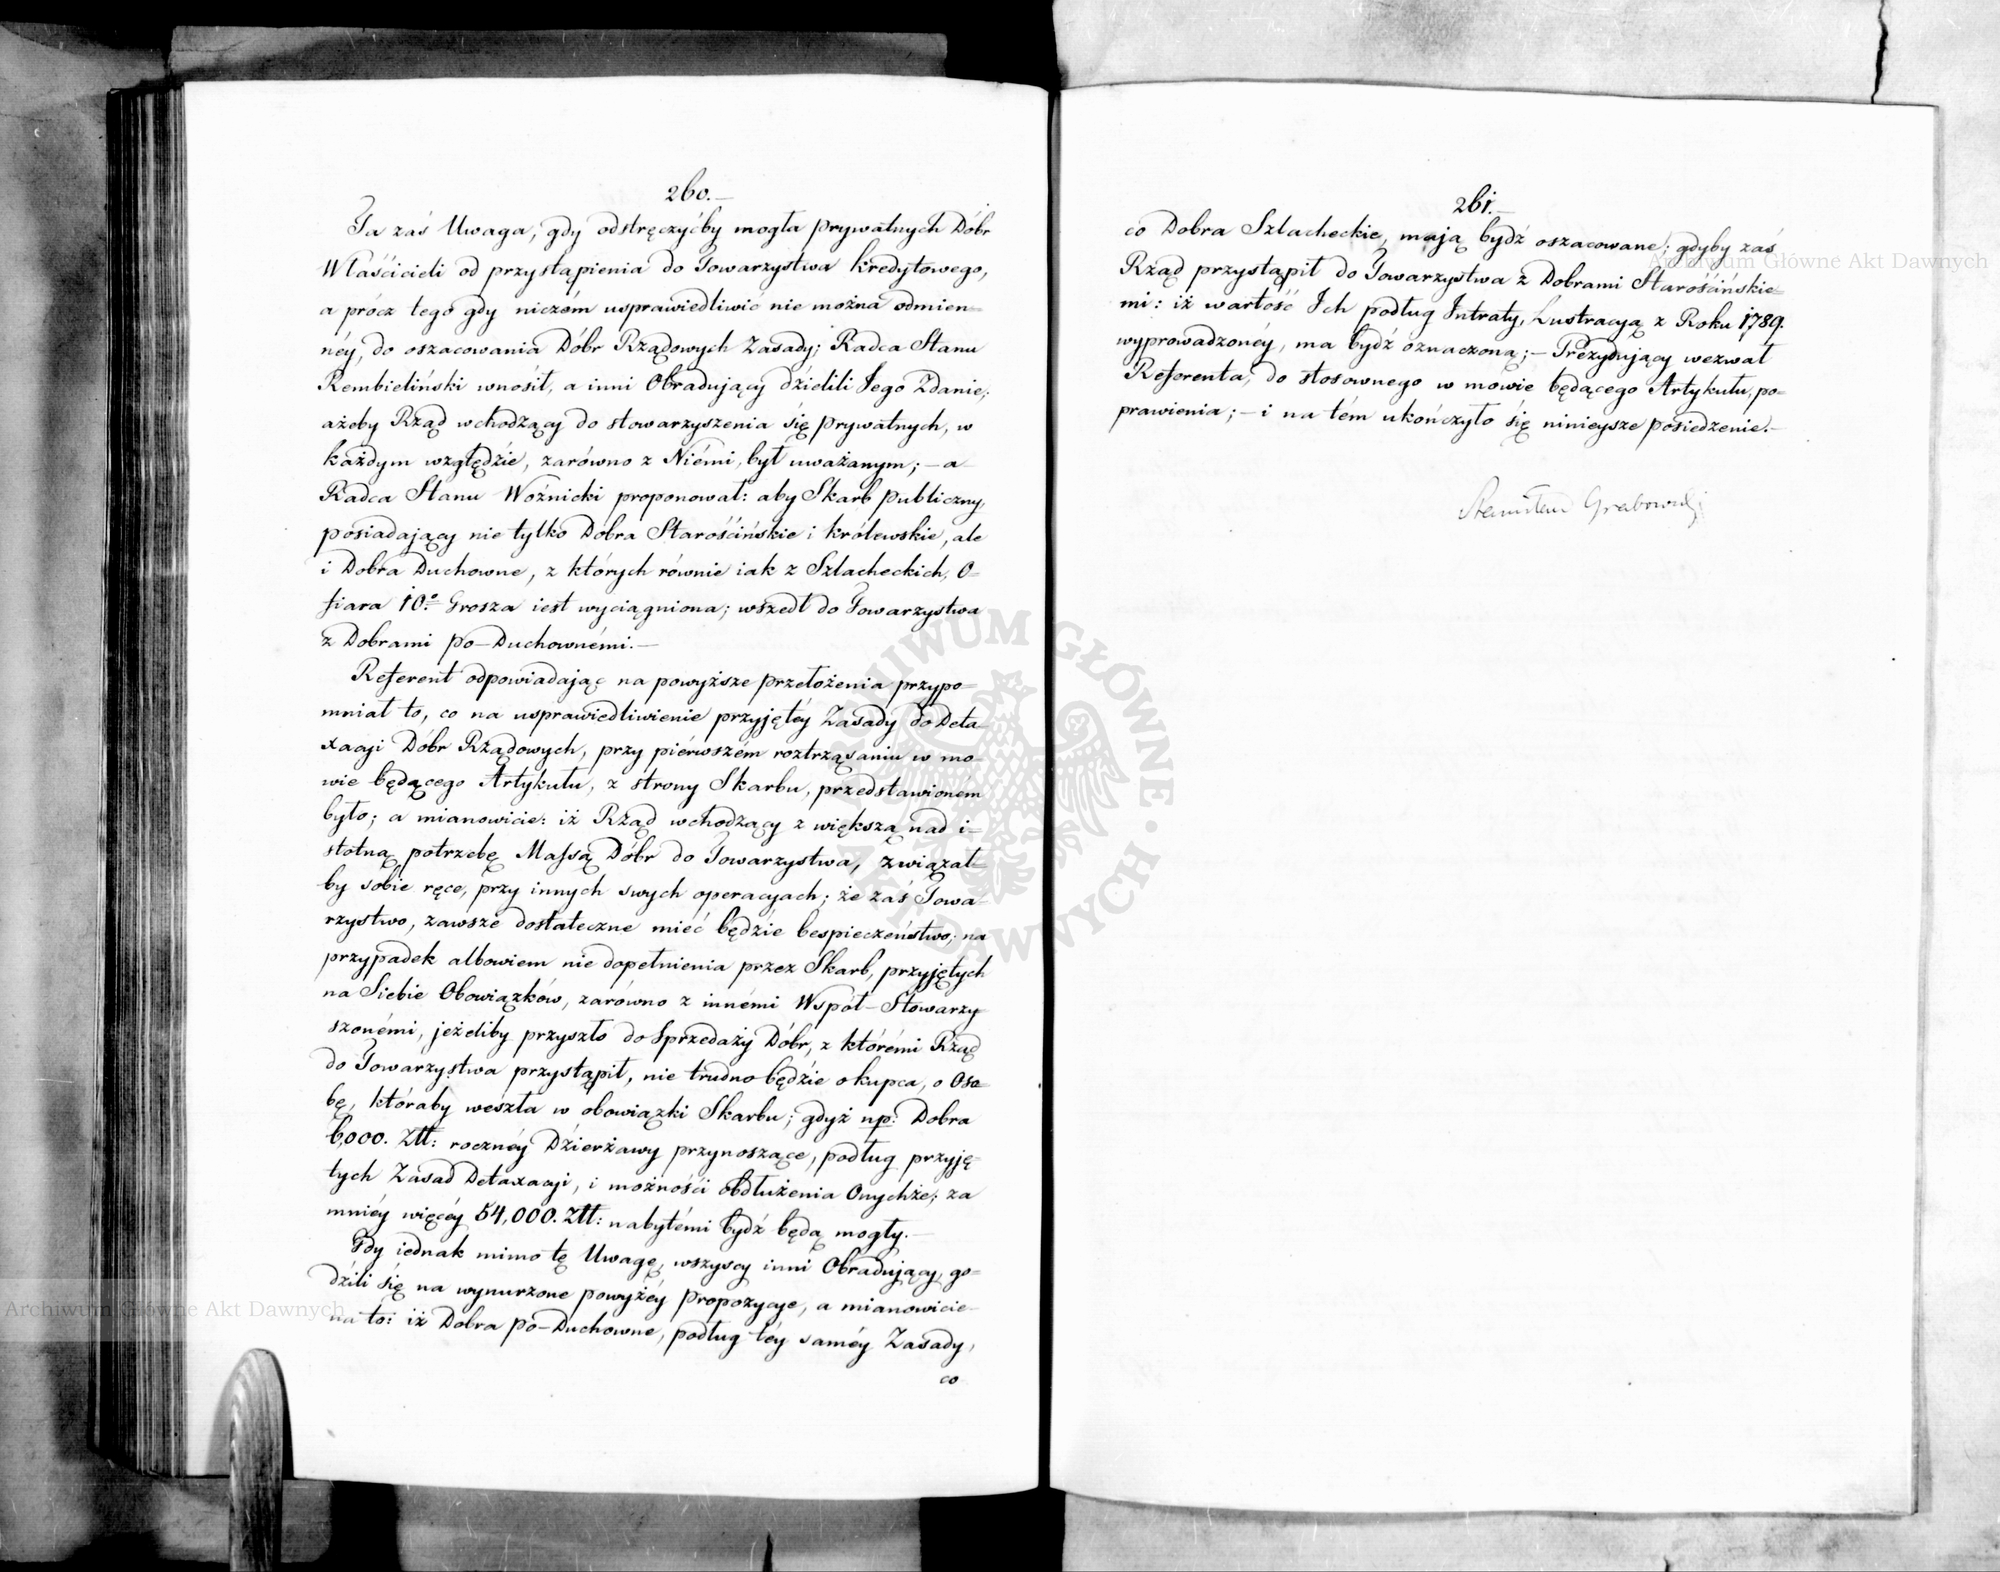 260.—
Ta zaś Uwaga, gdy odstręczyćby mogła prywatnych Dóbr
Właścicieli od przystąpienia do Towarzystwa kredytowego,
a prócz tego gdy niczém usprawiedliwić nie można odmien=
néy, do oszacowania Dóbr Rządowych Zasady; Radca Stanu
Rembieliński wnosił, a inni Obradujący dzielili Jego Zdanie;
ażeby Rząd wchodzący do stowarzyszenia się prywatnych, w
każdym względzie, zarówno z Niémi, był uważanym; — a
Radca Stanu Woźnicki proponował: aby Skarb publiczny,
posiadający nie tylko Dobra Starościńskie i królewskie, ale
i Dobra Duchowne, z których równie iak z Szlacheckich, O=
fiara 10.º Grosza iest wyciągniona; wszedł do Towarzystwa
z Dobrami po-Duchownémi.—
Referent odpowiadając na powyższe przełożenia przypo=
mniał to, co na usprawiedliwienie przyjętéy Zasady do Deta=
xacyi Dóbr Rządowych, przy piérwszém roztrząsaniu w mo=
wie będącego Artykułu, z strony Skarbu, przedstawioném
było; a mianowicie: iż Rząd wchodzący z większą nad i=
stotną potrzebę Massą Dóbr do Towarzystwa, związał=
by sobie ręce, przy innych swych operacyach; że zaś Towa=
rzystwo, zawsze dostateczne mieć będzie bespieczeństwo; na
przypadek albowiem nie dopełnienia przez Skarb, przyjętych
na Siebie Obowiązków, zarówno z innémi Współ-Stowarzy=
szonémi, jeżeliby przyszło do Sprzedaży Dóbr, z którémi Rząd
do Towarzystwa przystąpił, nie trudno będzie o kupca, o Oso=
bę, któraby weszła w obowiązki Skarbu; gdyż np: Dobra
6,000. Złł: rocznéy Dzierżawy przynoszące, podług przyję=
tych Zasad Detaxacyi, i możności obdłużenia Onychże; za
mniéy więcéy 54,000. Złł: nabytémi bydź będą mogły.—
Gdy iednak mimo tę Uwagę, wszyscy inni Obradujący, go=
dzili się na wynurzone powyżéy propozycye, a mianowicie
na to: iż Dobra po-Duchowne, podług téy saméy Zasady,
co
261.—
co Dobra Szlacheckie, mają bydź oszacowane; gdyby zaś
Rząd przystąpił do Towarzystwa z Dobrami Starościńskie=
mi: iż wartość Ich podług Intraty, Lustracyą z Roku 1789.
wyprowadzonéy, ma bydź oznaczoną; — Prezydujący wezwał
Referenta, do stosownego w mowie będącego Artykułu, po=
prawienia; — i na tém ukończyło się ninieysze posiedzenie.—
Stanisław Grabowski
Archiwum Główne Akt Dawnych
Archiwum Główne Akt Dawnych
ARCHIWUM GŁÓWNE AKT DAWNYCH